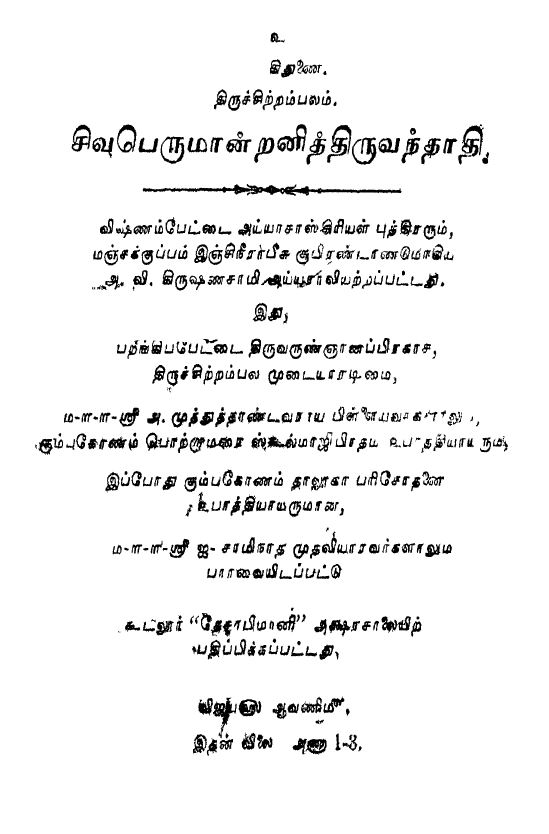 உ
கிதுணை.
திருச்சிற்றம்பலம்.
சிவபெருமான்றனித்திருவந்தாதி.
விஷ்ணம்பேட்டை அய்யாசாஸ்திரியள் புத்திரரும்,
மஞ்சக்குப்பம் இஞ்சினீரர்பீசு சூபிரண்டாணடுமாகிய
அ. வி. கிருஷணசாமி அய்யரா லியற்றப்பட்டது.
இது,
பறங்கிபபேட்டை திருவருண்ஞானப்பிரகாச,
திருச்சிற்றம்பல முடையாரடிமை,
ம-ள-ள-ஸ்ரீ அ. முத்துத்தாண்டவராய பிள்ளையவ
கும்பகோணம் பொற்றாமரை ஸ்கூல்மாஜி
இப்போது கும்பகோணம் தாலூகா பரிசோதனை
உபாத்தியாயருமான,
ம-ள-ள-ஸ்ரீ ஐ- சாமிநாத முதலியாரவர்களாலும
பார்வையிடப்பட்டு
கூடலூர் "தேசாபிமானி" அக்ஷரசாலையிற்
பதிப்பிக்கப்பட்டது,
விஜய௵ ஆவணி௴,
இதன் விலை அணா 1-3.